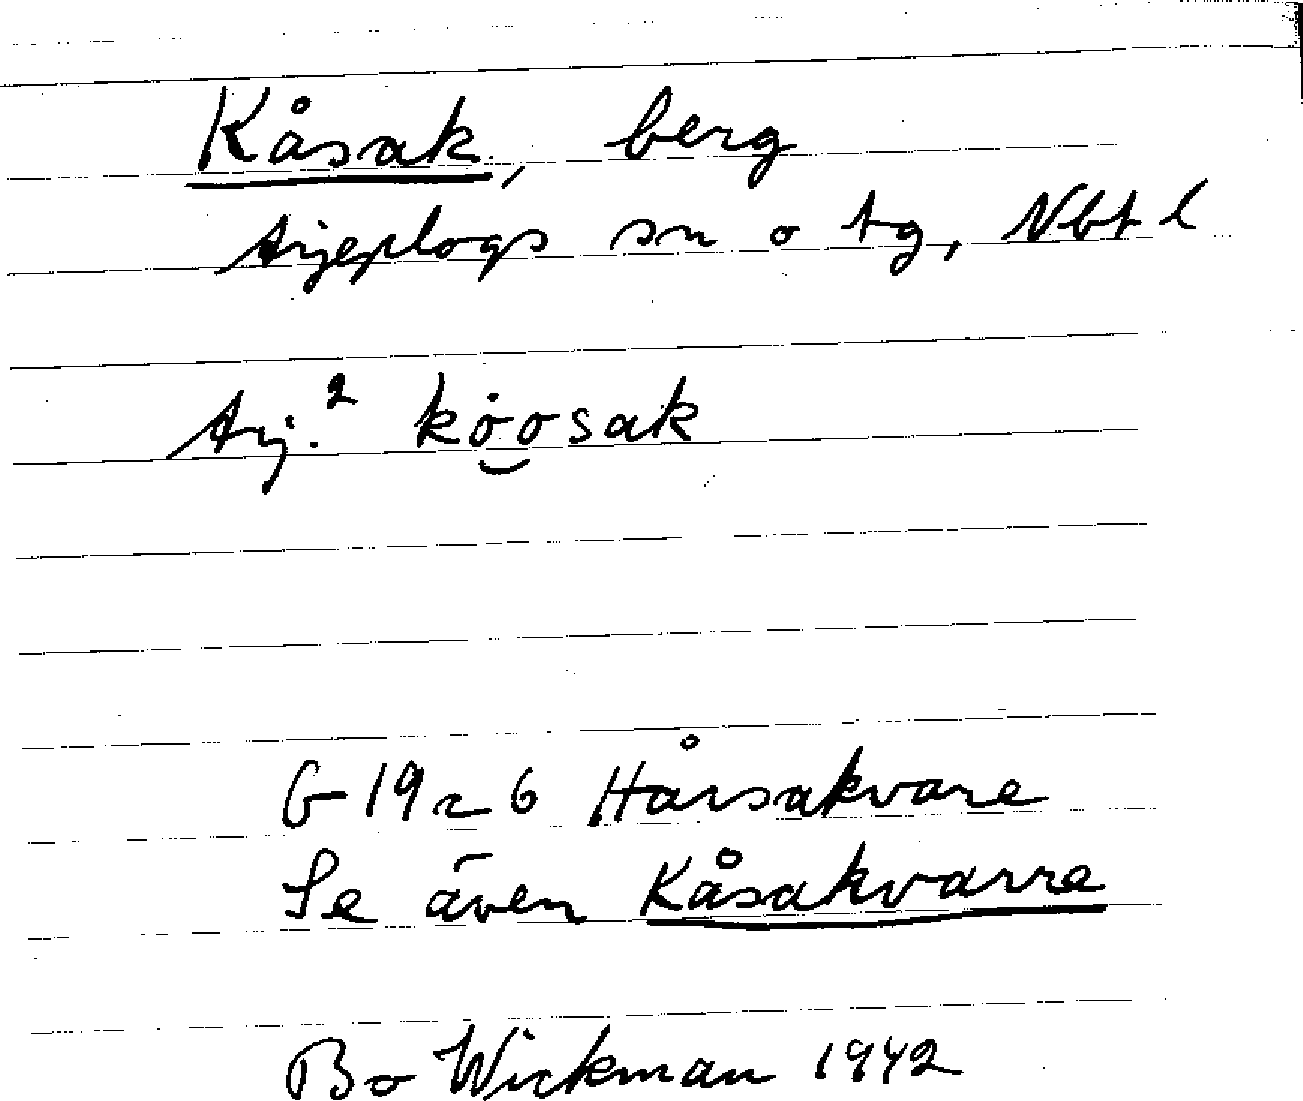 Kåsak, berg
Arjeplogs sn o tg, Nbt l
Arj.² kȯosak
G 19 r 6 Hårsakvare
Se även Kåsakvarre
Bo Wickman 1942